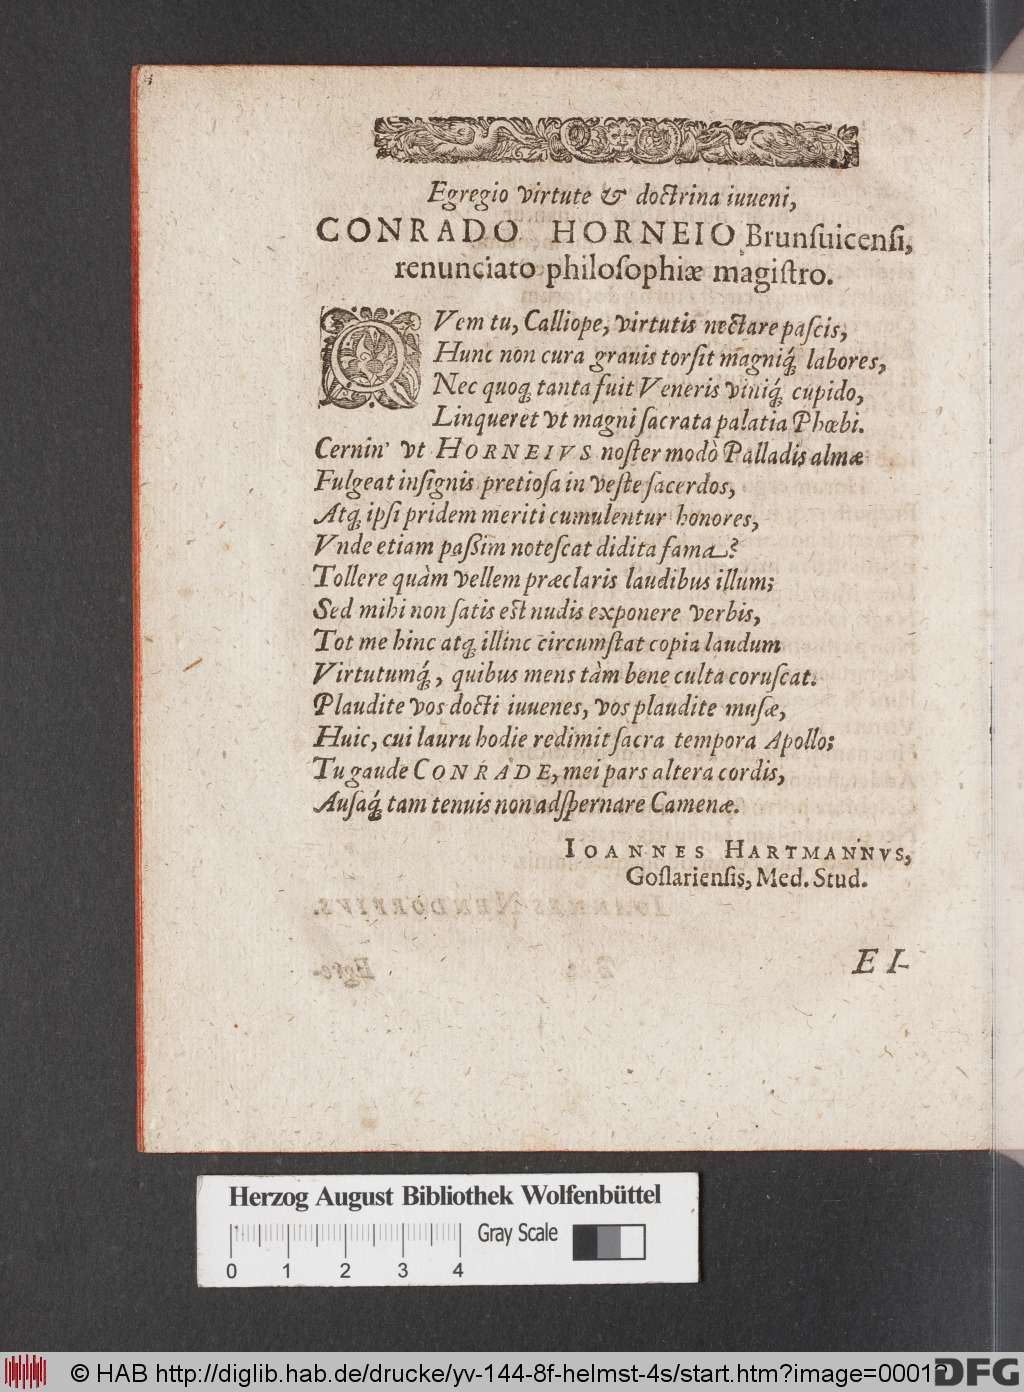 Egregio virtute & doctrina iuueni,
CONRADO HORNEIO Brunſuicenſi,
renunciato philoſophiæ magiſtro.
QVem tu, Calliope, virtutis nectare paſcis,
Hunc non cura grauis torſit magniq́; labores,
Nec quoq; tanta fuit Veneris viniq́; cupido,
Linqueret vt magni ſacrata palatia Phœbi.
Cernin' vt HORNEIVS noſter modò Palladis almæ
Fulgeat inſignis pretioſa in veſte ſacerdos,
Atq; ipſi pridem meriti cumulentur honores,
Vnde etiam paßim noteſcat didita fama?
Tollere quàm vellem præclaris laudibus illum;
Sed mihi non ſatis eſt nudis exponere verbis,
Tot me hinc atq; illinc circumſtat copia laudum
Virtutumq́;, quibus mens tàm bene culta coruſcat.
Plaudite vos docti iuuenes, vos plaudite muſæ,
Huic, cui lauru hodie redimit ſacra tempora Apollo;
Tu gaude CONRADE, mei pars altera cordis,
Auſaq́; tam tenuis non adſpernare Camenæ.
IOANNES HARTMANNVS,
Goſlarienſis, Med. Stud.
EI-
Herzog August Bibliothek Wolfenbüttel
Gray Scale
0 1 2 3 4
© HAB http://diglib.hab.de/drucke/yv-144-8f-helmst-4s/start.htm?image=00012
DFG